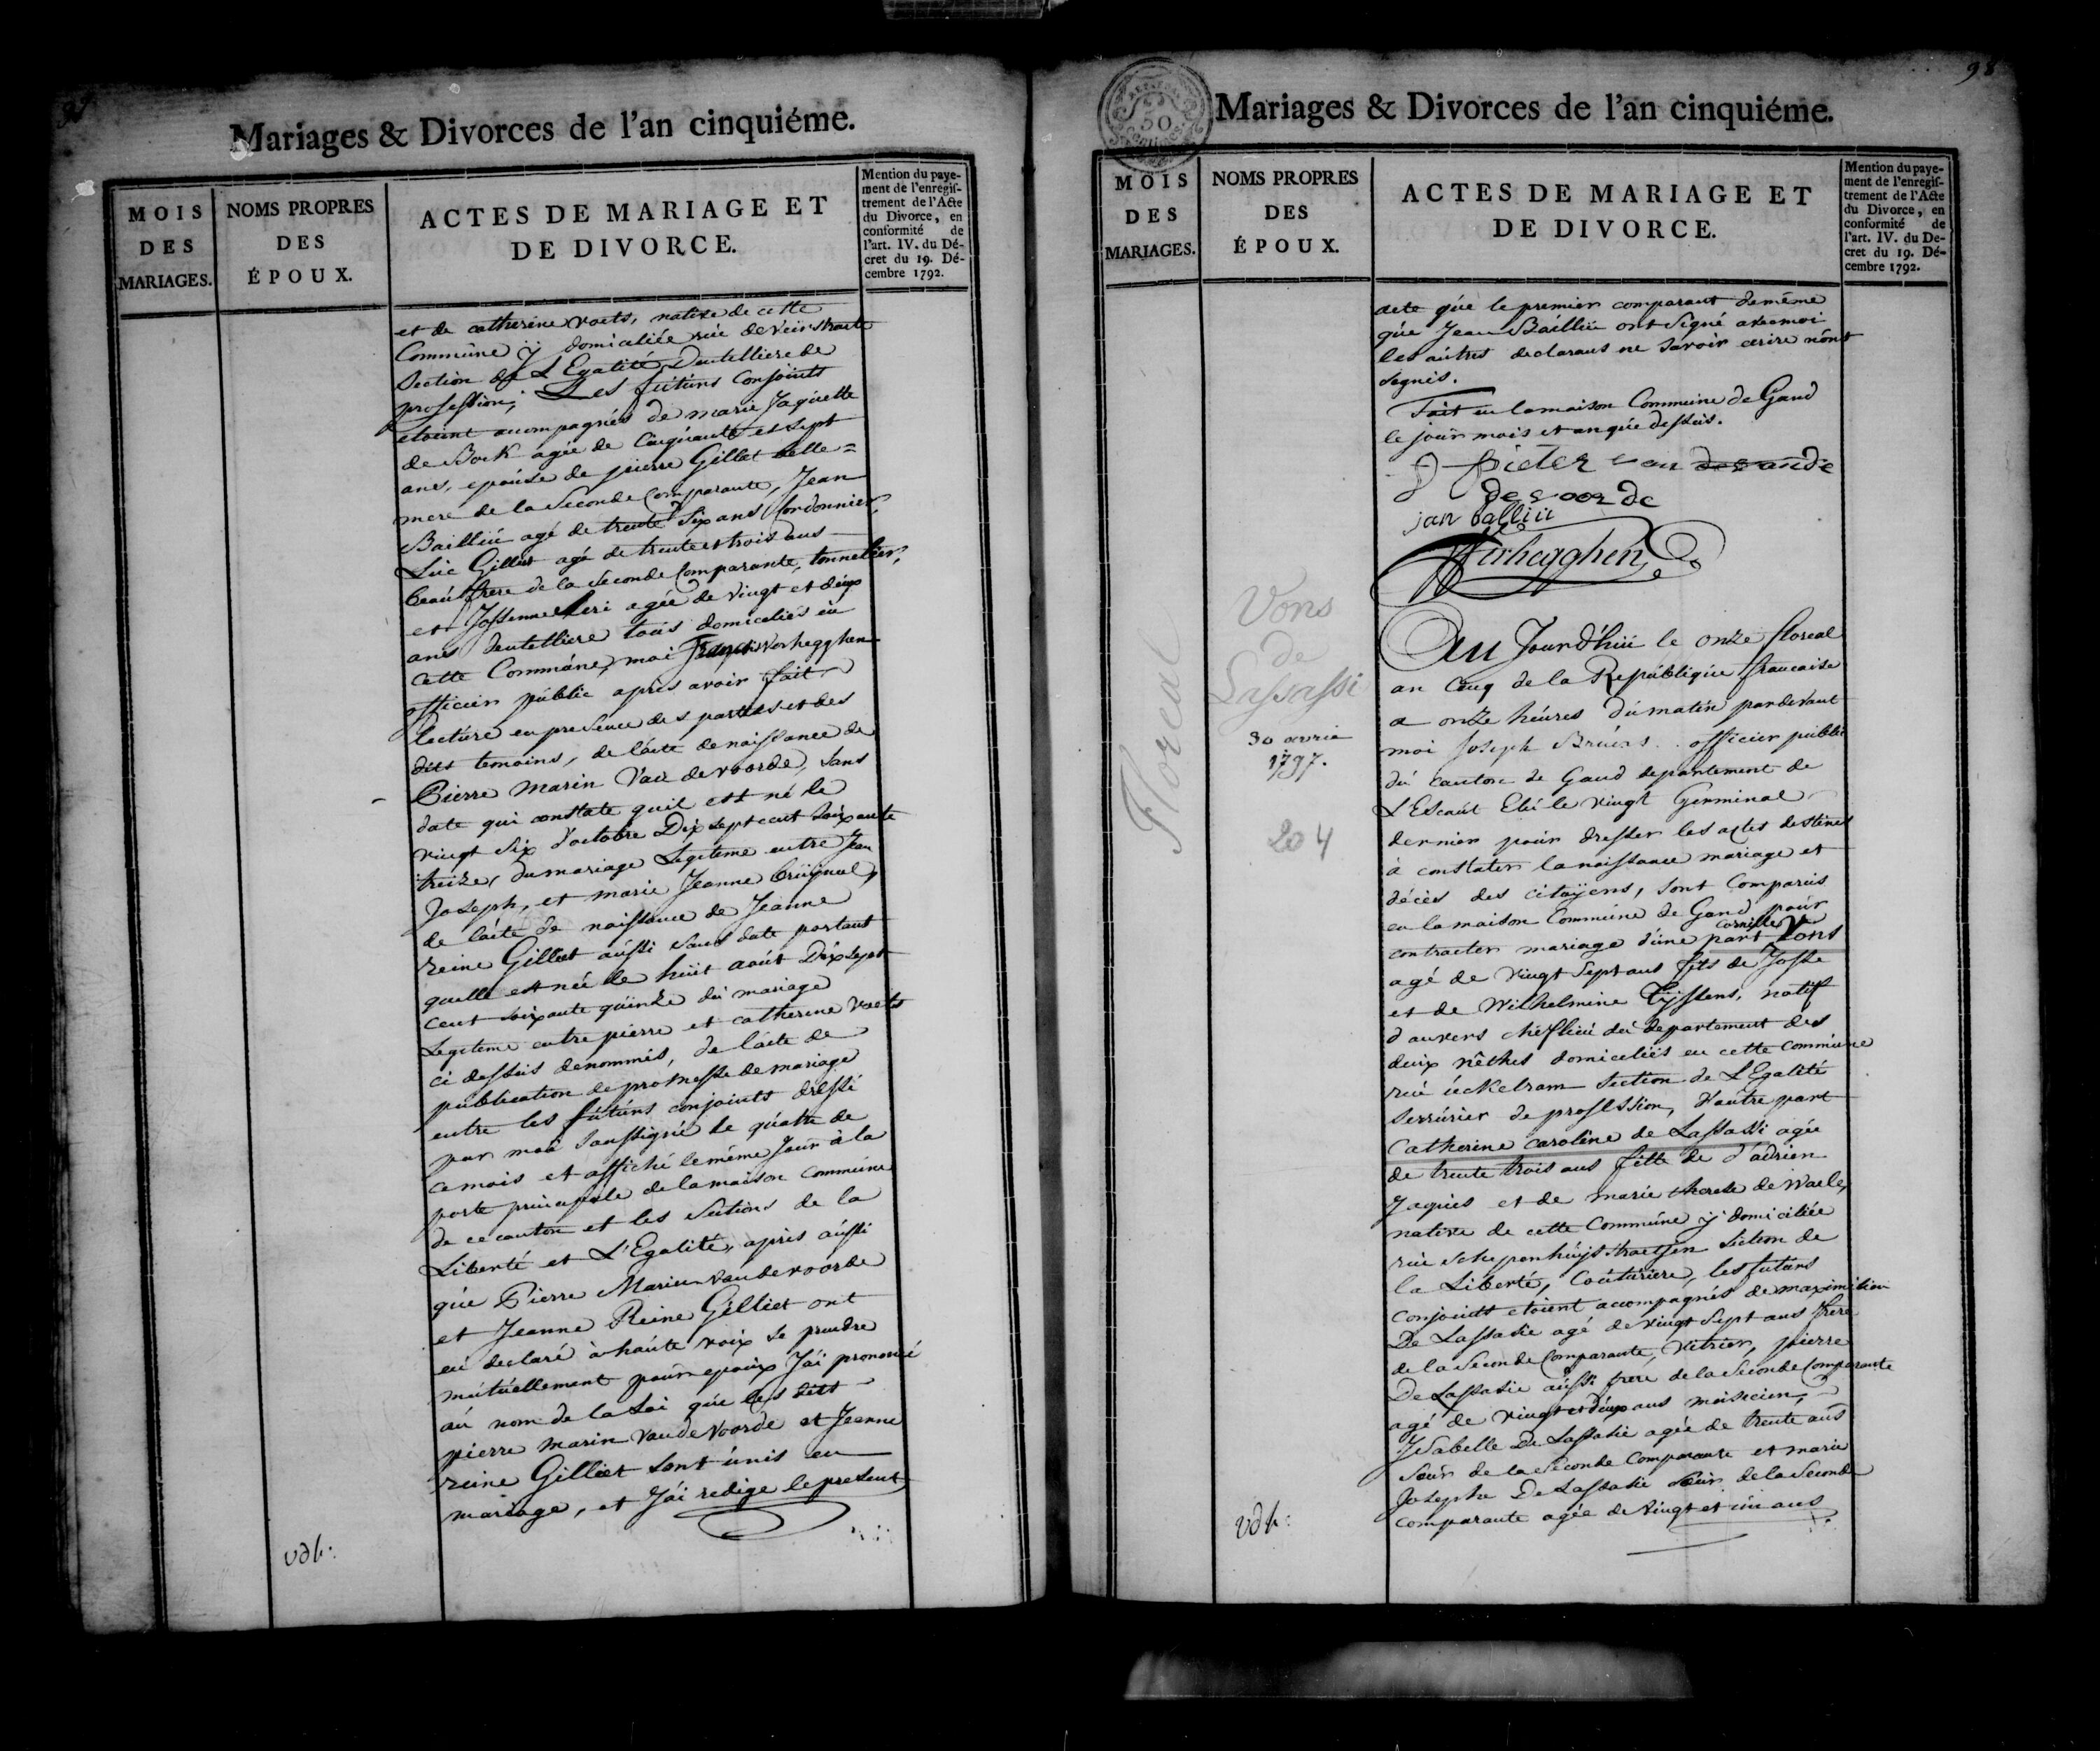 Mariages & Divorces de l'an cinquiéme.
MOIS
DES
MARIAGES.
NOMS PROPRES
DES
ÉPOUX.
ACTES DE MARIAGE ET
DE DIVORCE.
Mention du paye-
ment de l'enregis-
trement de l'Acte
du Divorce, en
conformité de
l'art. IV. du Dé-
cret du 19. Dé-
cembre 1792.
et de catherine voets, native de cette
Commune y domiciliée rüe
Section de L'Egalité Dentelliere de
profession; Les futurs Conjoints
etoient accompagnés de marie Jaquette
de Bock agée de Cinquante et sept
ans, epouse de pierre Gilliet belle=
mere de la Seconde Comparante, Jean
Bailliü agé de trente Six ans Cordonnier,
Luc Gilliet agé de trente et trois ans
beau frere de la Seconde Comparante, tonnelier,
et agée de vingt et deux
ans dentelliere tous domiciliés en
cette Commune, moi François Verhegghen
officier public après avoir fait
lecture en presence des parties et des
dits temoins, de l'acte de naissance de
Pierre Marin Van de voorde, sans
date qui constate quil est né le
vingt Six d'octobre Dix Sept cent Soixante
treize, du mariage Legitime entre Jean
Joseph, et marie Jeanne
de l'acte de naissance de Jeanne
reine Gilliet aussi sans date portant
quelle est née le huit août Dix Sept
cent Soixante quinze du mariage
Legitime entre pierre et catherine voets
ci dessus denommés, de l'acte de
publication de promesse de mariage
entre les futurs conjoints dressé
par moi Soussigné le quatre de
ce mois et affiché le même Jour à la
porte principale de la maison commune
de ce canton et les Sections de la
Liberté et L'Egalité, après aussi
que Pierre Marin Van de voorde
et Jeanne Reine Gilliet ont
eü declaré à haute voix se prendre
mutuellement pour epoux J'ai prononcé
au nom de la Loi que les dits
pierre marin Van de Voorde et Jeanne
reine Gilliet sont unis en
mariage, et J'ai redigé le present
vdh:
98
Mariages & Divorces de l'an cinquiéme.
50
MOIS
DES
MARIAGES.
NOMS PROPRES
DES
ÉPOUX.
ACTES DE MARIAGE ET
DE DIVORCE.
Mention du paye-
ment de l'enregis-
trement de l'Acte
du Divorce, en
conformité de
l'art. IV. du De-
cret du 19. Dé-
cembre 1792.
acte que le premier comparant de même
que Jean Bailliü ont Signé avec moi
les autres declarans ne Savoir ecrire n'ont
Signés.
Fait en la maison Commune de Gand
le jour mois et an que dessus.
pieter van
de voorde
jan balliü
Verhegghen
Floreal
Vons
de
Lassassi
30 avril
1797.
204
Au Jourd'hui le onze floreal
an Cinq de la République francaise
a onze heures du matin pardevant
moi Joseph Bruens officier public
du canton de Gand departement de
L'Escaut Elü le vingt Germinal
dernier pour dresser les actes destinés
à constater la naissance mariage et
décès des citoÿens, sont Comparus
en la maison Commune de Gand pour
contracter mariage d'une part Corneille Vons
agé de vingt Sept ans fils de Josse
et de Wilhelmine Tÿssens, natif
d'anvers cheflieü du departement des
deux nêthes domiciliés en cette commune
rue section de L'Egalité
Serrurier de profession, d'autre part
Catherine caroline de Lassassi agée
de trente trois ans fille de d'adrien
Jaques et de marie therese de Waele,
native de cette Commune ÿ domiciliée
rue Schepenhüys straetjen Section de
la Liberté, Couturiere, les futurs
Conjoints etoient accompagnés de maximilien
De Lassasie agé de vingt Sept ans frere
de la Seconde Comparante, vitrier, pierre
De Lassasie aussi frere de la Seconde Comparante
agé de vingt et deux ans musicien,
Isabelle De Lassasie agée de trente ans
Sœur de la Seconde Comparante et marie
Josephe De Lassasie sœur de la Seconde
comparante agée de vingt et un ans
vdh: